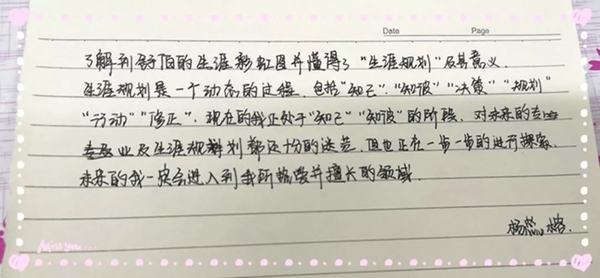 Date Page
了解到舒伯的生涯彩虹图并懂得了“生涯规划”及其意义.
生涯规划是一个动态的过程, 包括“知己”“知彼”“决策”“规划”
“行动”“修正”. 现在的我正处于“知己”“知彼”的阶段, 对未来的专
业及生涯规划都还十份的迷茫, 但也正在一步一步的进行探索.
未来的我一定会进入到我所热爱并擅长的领域.
杨
Miss you...